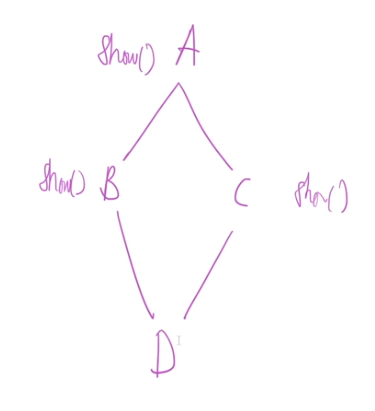 show() A
show() B C show()
D